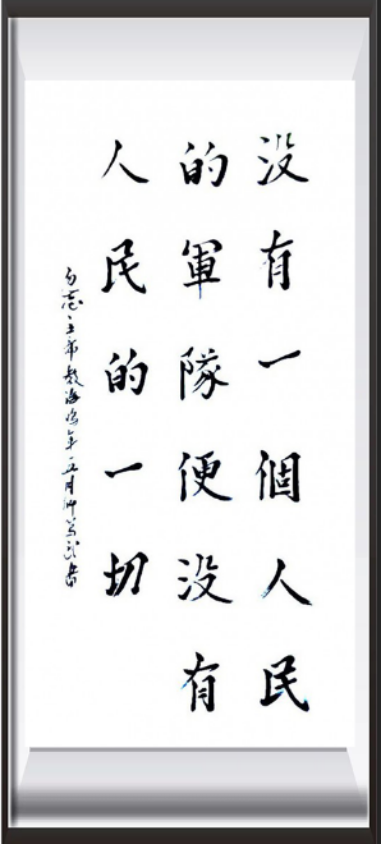 没有一個人民
的軍隊便没有
人民的一切